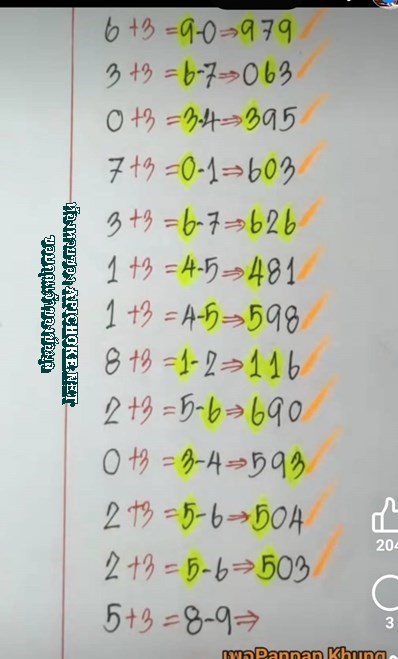 6+3=9-0⇒979
3+3=6-7⇒063
0+3=3-4⇒395
7+3=0-1⇒603
3+3=6-7⇒626
1+3=4-5⇒481
1+3=4-5⇒598
8+3=1-2⇒116
2+3=5-6⇒690
0+3=3-4⇒593
2+3=5-6⇒504
2+3=5-6⇒503
5+3=8-9⇒
204
3
เพจPappan Khung